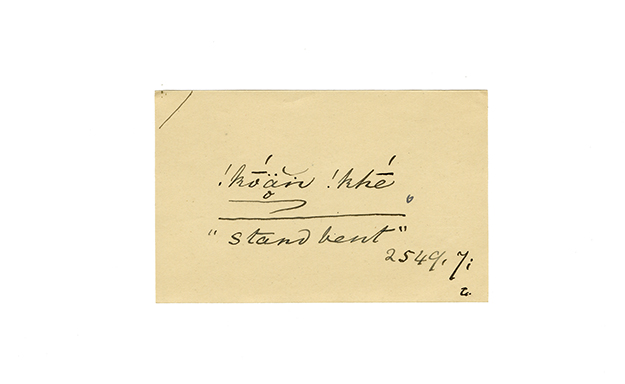 !kṓä̆n !khé
"stand bent"
2549, 7;